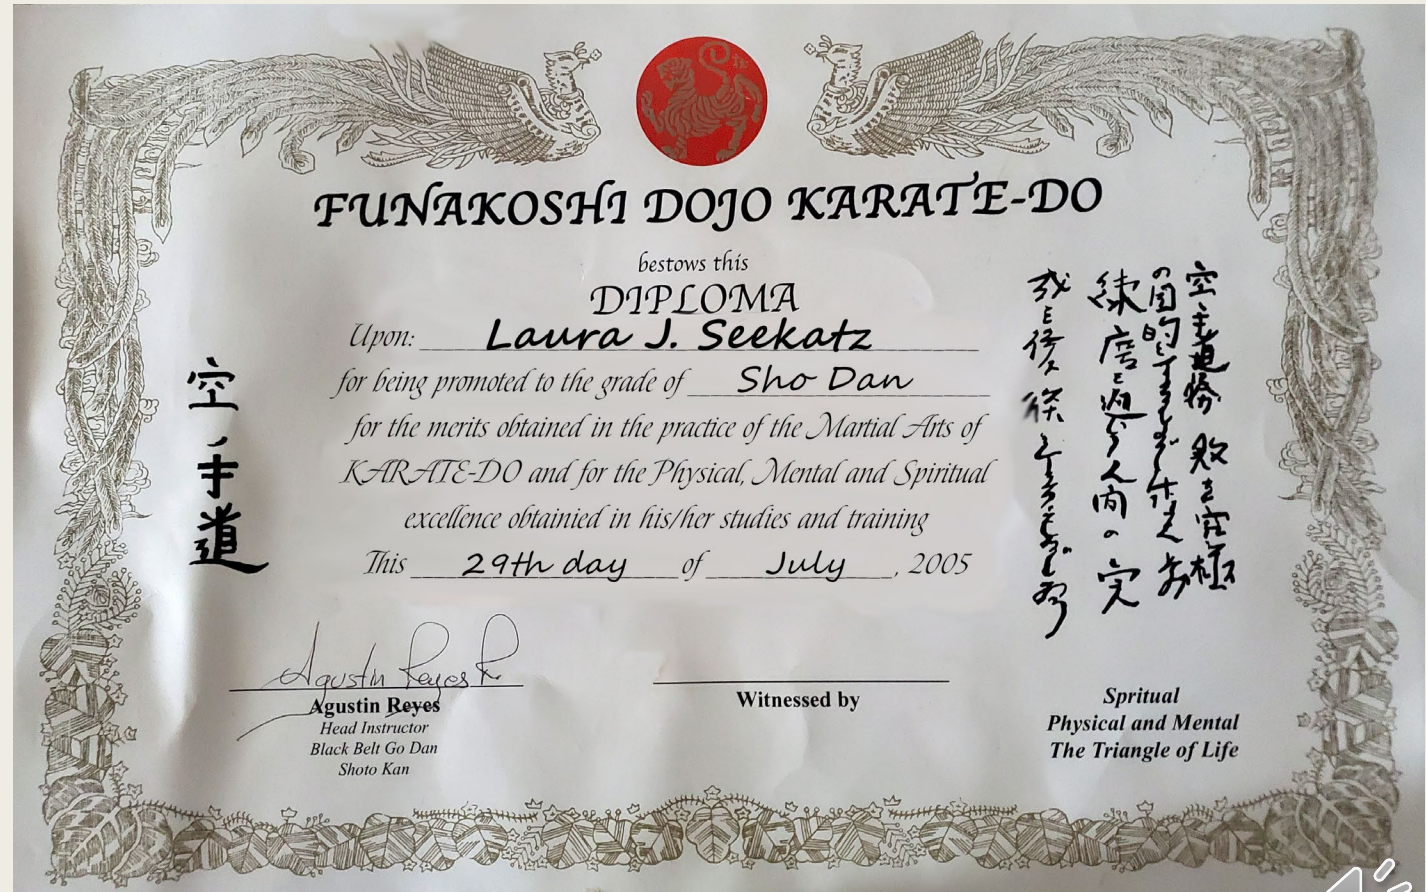 FUNAKOSHI DOJO KARATE-DO
bestows this
DIPLOMA
Upon: Laura J. Seekatz
for being promoted to the grade of Sho Dan
for the merits obtained in the practice of the Martial Arts of
KARATE-DO and for the Physical, Mental and Spiritual
excellence obtainied in his/her studies and training
This 29th day of July, 2005
空手道
空手道勝敗を究極
の目的とするものに非ず
練磨を通じ人間の完
成を
Agustin Reyes R.
Agustin Reyes
Head Instructor
Black Belt Go Dan
Shoto Kan
Witnessed by
Spritual
Physical and Mental
The Triangle of Life